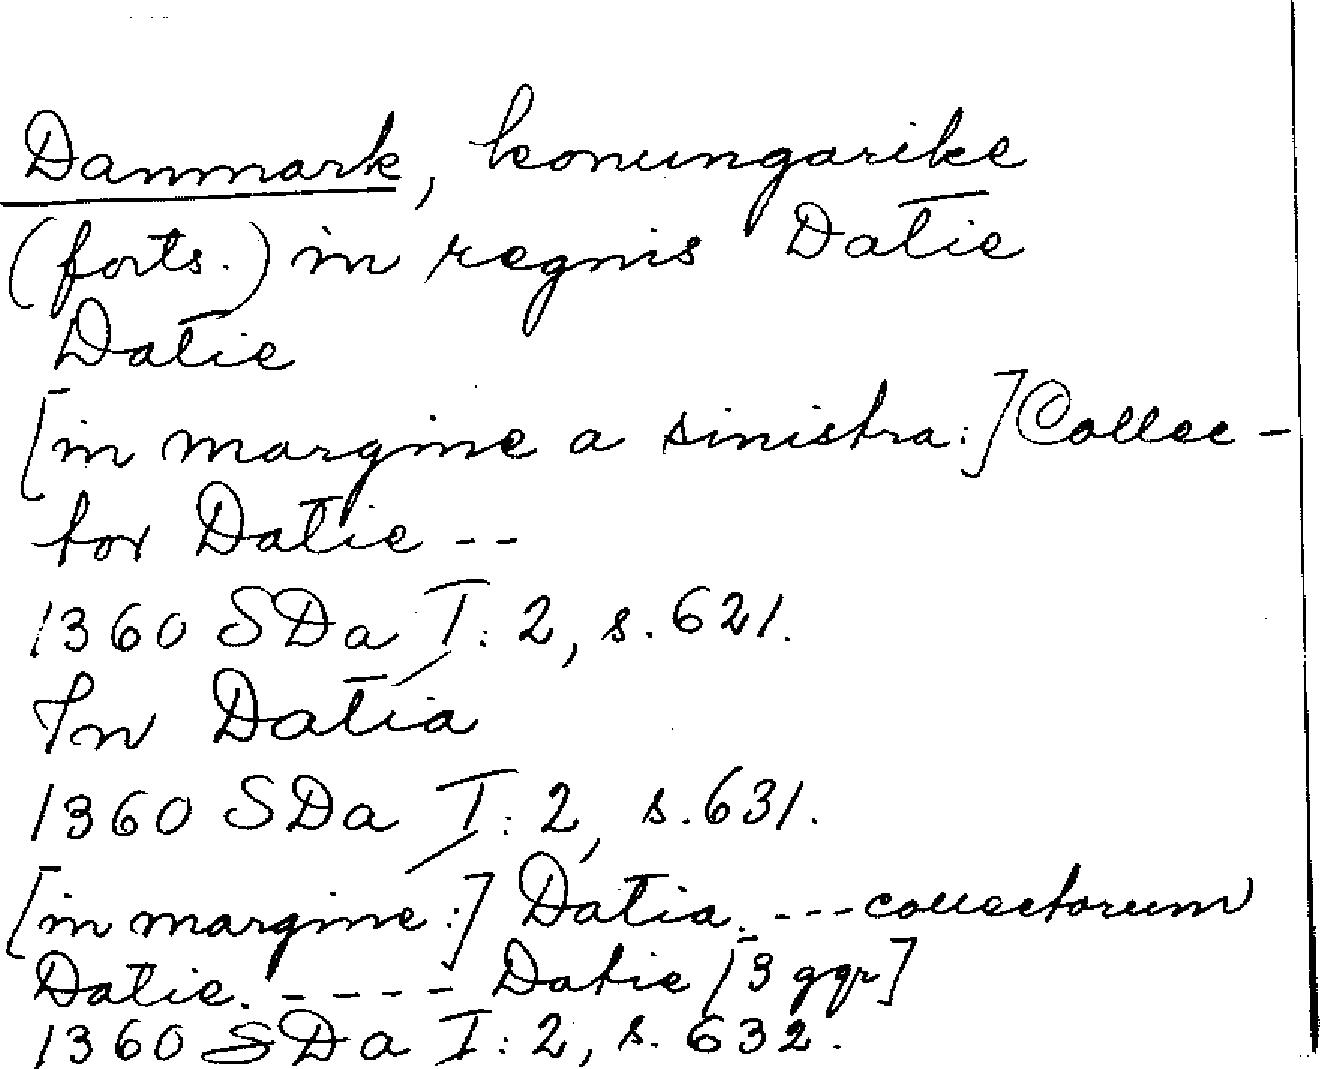 Danmark, konungarike
(forts.) in regnis Datie
Datie
[in margine a sinistra:] Collec-
tor Datie --
1360 SDa I: 2, s. 621.
In Datia
1360 SDa I: 2, s. 631.
[in margine:] Datia. --- collectorum
Datie. ---- Datie [3 ggr]
1360 SDa I: 2, s. 632.